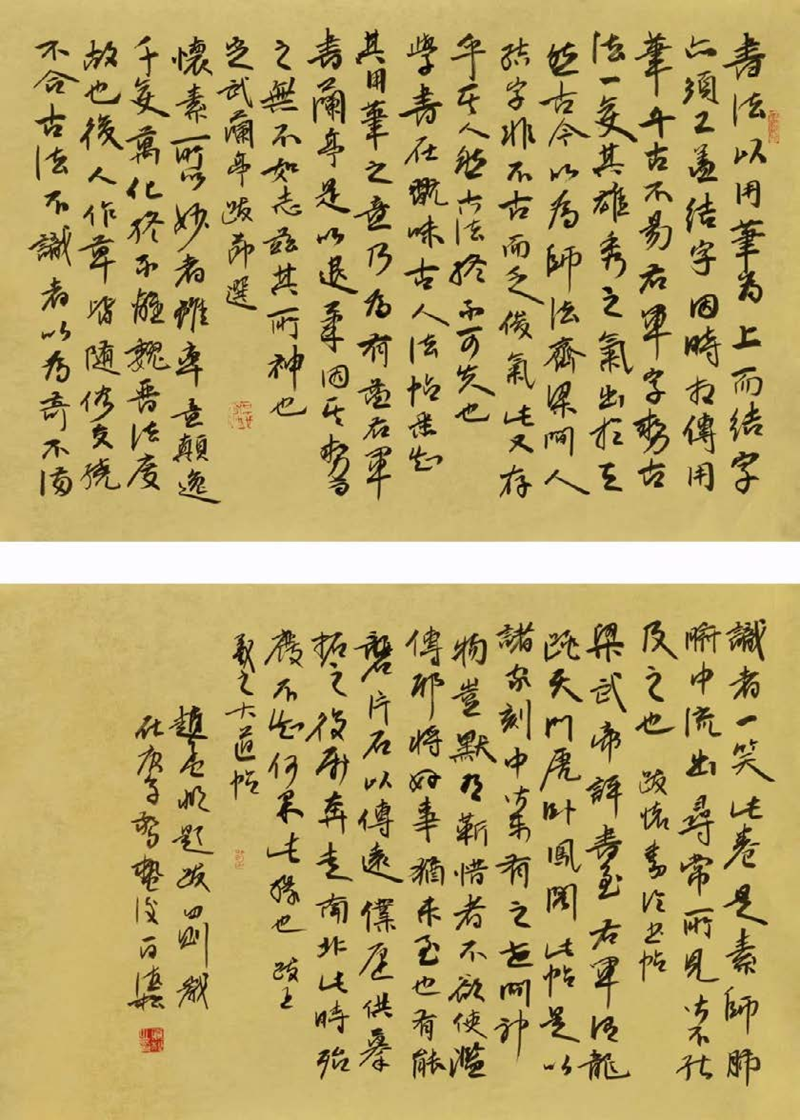 書法以用筆為上而結字
亦須工蓋結字因時相傳用
筆千古不易右軍字勢古
法一變其雄秀之氣出於天
然古今以為師法齊梁間人
結字非不古而乏俊氣此又存
乎其人然古法終不可失也
學書在翫味古人法帖悉知
其用筆之意乃為有益右軍
書蘭亭是以退筆因其勢
之無不如志茲其所神也
定武蘭亭跋節選
懷素所以妙者雖率意顛逸
千變萬化終不離魏晉法度
故也後人作草皆隨俗交繞
不合古法不識者以為奇不滿
識者一笑此卷是素師肺
腑中流出尋常所見皆不能
及之也 跋懷素論書帖
梁武帝評書至右軍謂龍
跳天門虎卧鳳閣此帖是以
諸家刻中皆有之世間神
物豈默有靳惜者不欲使濫
傳耶將好事猶未至也有能
磨片石以傳遠僕願供摹
拓之役 奔走南北此時殆
廢不知何果此緣也 跋王
羲之大道帖
趙孟頫題跋四則
在庚子驚蟄後